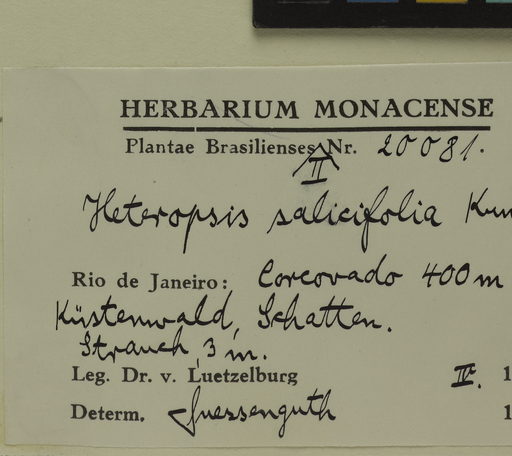 HERBARIUM MONACENSE
Plantae Brasilienses II Nr. 20081.
Heteropsis salicifolia Kun
Rio de Janeiro: Corcovado 400 m
Küstenwald, Schatten.
Strauch, 3 m.
Leg. Dr. v. Luetzelburg IV. 1
Determ. Suessenguth 1